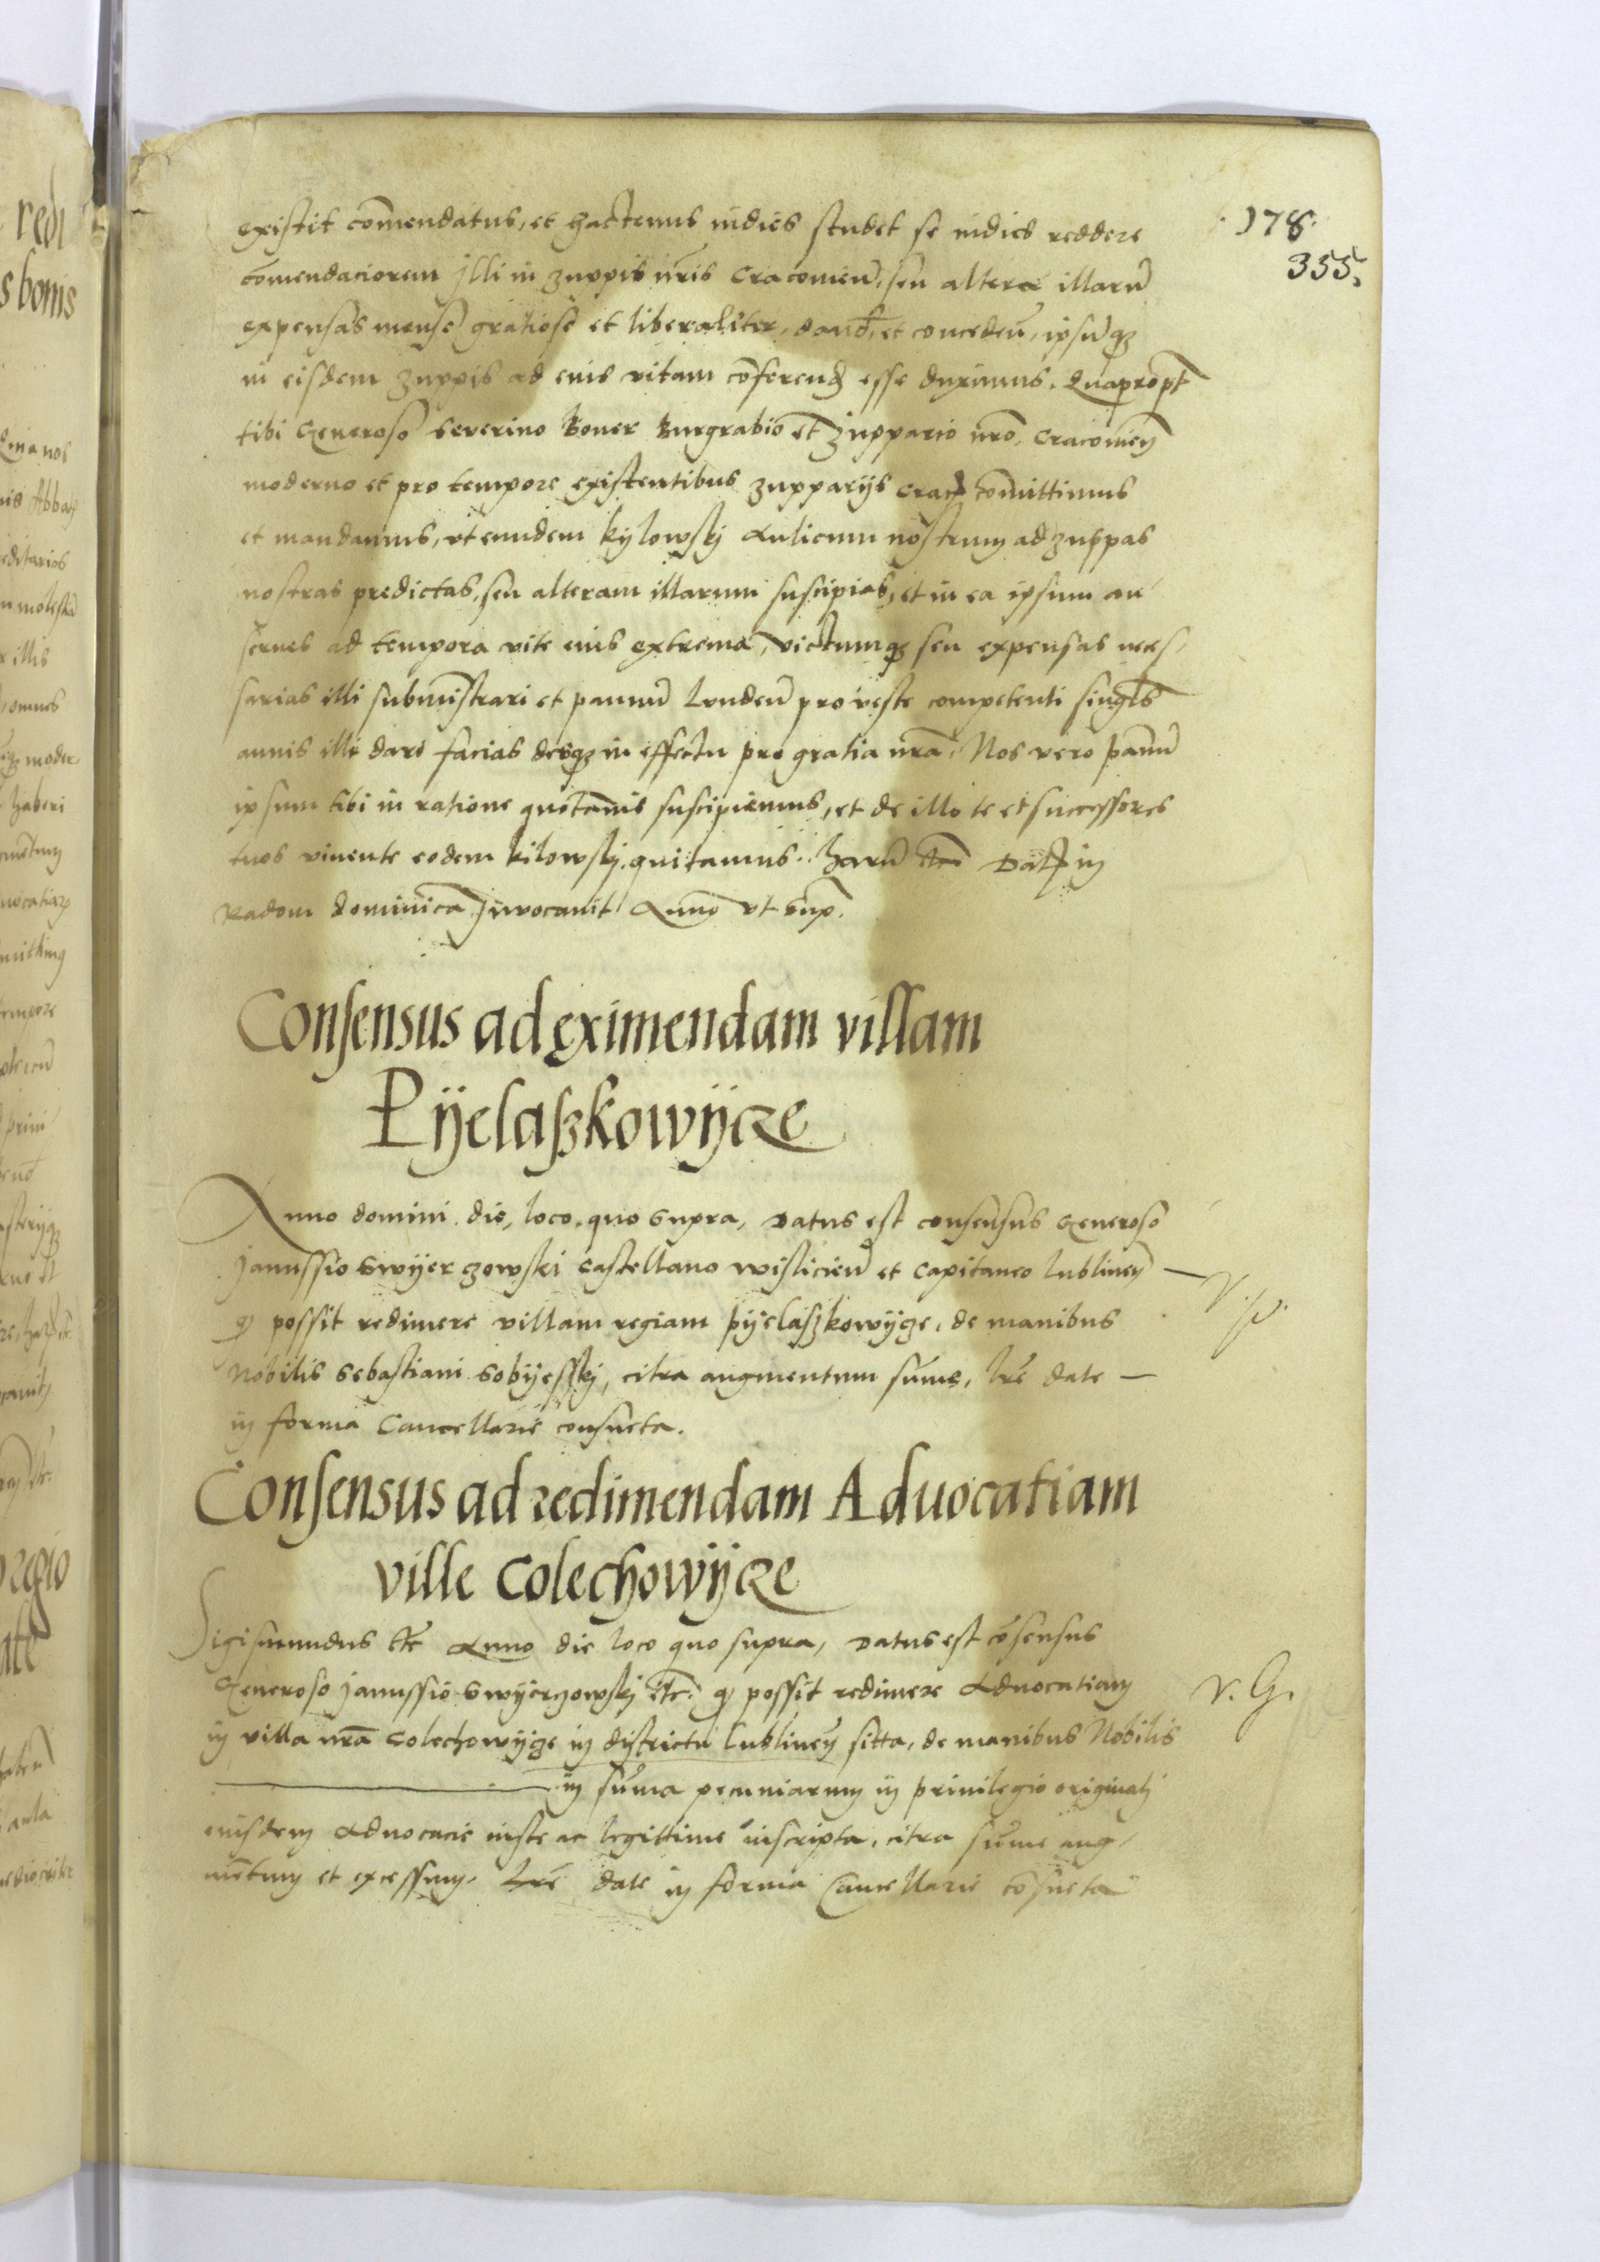 178.
355.
existit com̄endatus, et hactenus indies studet se indies reddere
com̄endaciorem illi in zuppis nr̄is Cracovien̄, seu altera illarū
expensas mense gratiose et liberaliter, dand̄, et conceden̄, ipsūqz
in eisdem zuppis ad eius vitam cōferend̄ esse duximus. Quapropt̄
tibi Generoso Severino Boner Burgrabio et zuppario nr̄o Cracovien̄
moderno et pro tempore existentibus zupparijs Crac̄ com̄ittimus
et mandamus, ut eundem kylowskj Aulicum nostrum ad zuppas
nostras predictas, seu alteram illarum suscipias, et in ea ipsum con
serves ad tempora vite eius extrema, victumqz seu expensas neces,
sarias illi submīstrari et pannū Lunden̄ pro veste competenti singl̄is
annis illi dare facias desqz in effectu pro gratia nr̄a. Nos vero pannū
ipsum tibi in ratione quotannis suscipiemus, et de illo te et successores
tuos vivente eodem kilowskj, quitamus. harū etc̄ Dat̄ in
Radom dominica Invocavit Anno ut supr̄.
Consensus ad eximendam villam
Pÿelaszkowÿcze
Anno domini die, loco, quo supra, Datus est consensus Generoso
Janussio Swÿerczowski Castellano wislicien̄ et Capitaneo lublinen̄
qȝ possit redimere villam regiam pÿelaszkowÿcze, de manibus
Nobilis Sebastiani Sobÿesskj, citra augmentum sum̄e, lr̄e date
in forma Cancellarie consueta.
Consensus ad redimendam Aduocatiam
ville Colechowÿcze
Sigismundus etc̄ Anno die loco quo supra, Datus est cōsensus
Generoso Janussio Swÿerczowskj etc̄. qȝ possit redimere Aduocatiam
in villa nr̄a Colechowÿcze in districtu Lublinen̄ sitta, de manibus Nobilis
in sum̄a pecuniarum in privilegio originali
eiusdem Aduocacie iuste ac legittime inscripta, citra sum̄e aug,
mentum et excessum, lr̄e date in forma Cancellarie cōsueta
V. G.